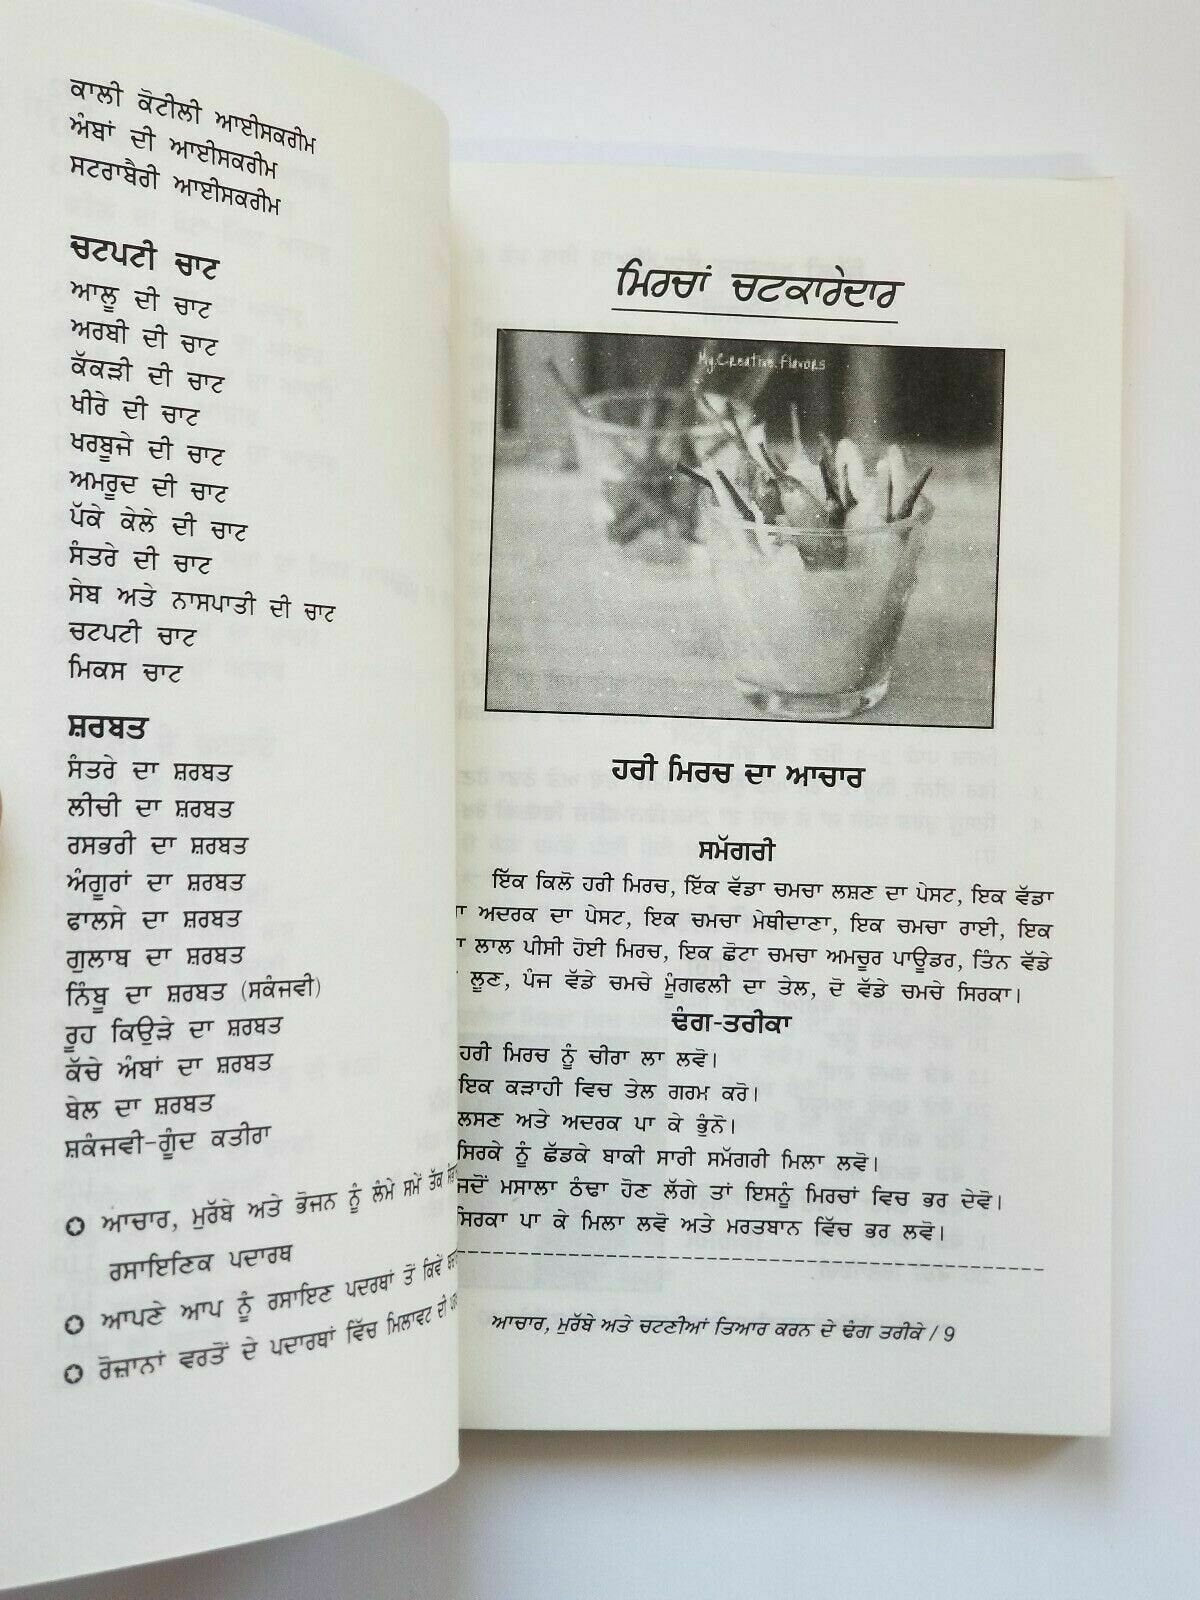 ਕਾਲੀ ਕੋਟੀਲੀ ਆਈਸਕਰੀਮ
ਅੰਬਾਂ ਦੀ ਆਈਸਕਰੀਮ
ਸਟਰਾਬੈਰੀ ਆਈਸਕਰੀਮ
ਚਟਪਟੀ ਚਾਟ
ਆਲੂ ਦੀ ਚਾਟ
ਅਰਬੀ ਦੀ ਚਾਟ
ਕੱਕੜੀ ਦੀ ਚਾਟ
ਖੀਰੇ ਦੀ ਚਾਟ
ਖਰਬੂਜੇ ਦੀ ਚਾਟ
ਅਮਰੂਦ ਦੀ ਚਾਟ
ਪੱਕੇ ਕੇਲੇ ਦੀ ਚਾਟ
ਸੰਤਰੇ ਦੀ ਚਾਟ
ਸੇਬ ਅਤੇ ਨਾਸਪਾਤੀ ਦੀ ਚਾਟ
ਚਟਪਟੀ ਚਾਟ
ਮਿਕਸ ਚਾਟ
ਸ਼ਰਬਤ
ਸੰਤਰੇ ਦਾ ਸ਼ਰਬਤ
ਲੀਚੀ ਦਾ ਸ਼ਰਬਤ
ਰਸਭਰੀ ਦਾ ਸ਼ਰਬਤ
ਅੰਗੂਰਾਂ ਦਾ ਸ਼ਰਬਤ
ਫਾਲਸੇ ਦਾ ਸ਼ਰਬਤ
ਗੁਲਾਬ ਦਾ ਸ਼ਰਬਤ
ਨਿੰਬੂ ਦਾ ਸ਼ਰਬਤ (ਸਕੰਜਵੀ)
ਰੂਹ ਕਿਉੜੇ ਦਾ ਸ਼ਰਬਤ
ਕੱਚੇ ਅੰਬਾਂ ਦਾ ਸ਼ਰਬਤ
ਬੇਲ ਦਾ ਸ਼ਰਬਤ
ਸ਼ਕੰਜਵੀ-ਗੂੰਦ ਕਤੀਰਾ
ਆਚਾਰ, ਮੁਰੱਬੇ ਅਤੇ ਭੋਜਨ ਨੂੰ ਲੰਮੇ ਸਮੇਂ ਤੱਕ
ਰਸਾਇਣਿਕ ਪਦਾਰਥ
ਆਪਣੇ ਆਪ ਨੂੰ ਰਸਾਇਣ ਪਦਰਥਾਂ ਤੋਂ ਕਿਵੇਂ
ਰੋਜ਼ਾਨਾਂ ਵਰਤੋਂ ਦੇ ਪਦਾਰਥਾਂ ਵਿੱਚ ਮਿਲਾਵਟ ਦੀ
ਮਿਰਚਾਂ ਚਟਕਾਰੇਦਾਰ
My.Creative.Flavors
ਹਰੀ ਮਿਰਚ ਦਾ ਆਚਾਰ
ਸਮੱਗਰੀ
ਇੱਕ ਕਿਲੋ ਹਰੀ ਮਿਰਚ, ਇੱਕ ਵੱਡਾ ਚਮਚਾ ਲਸ਼ਣ ਦਾ ਪੇਸਟ, ਇਕ ਵੱਡਾ
ਅਦਰਕ ਦਾ ਪੇਸਟ, ਇਕ ਚਮਚਾ ਮੇਥੀਦਾਣਾ, ਇਕ ਚਮਚਾ ਰਾਈ, ਇਕ
ਲਾਲ ਪੀਸੀ ਹੋਈ ਮਿਰਚ, ਇਕ ਛੋਟਾ ਚਮਚਾ ਅਮਚੂਰ ਪਾਊਡਰ, ਤਿੰਨ ਵੱਡੇ
ਲੂਣ, ਪੰਜ ਵੱਡੇ ਚਮਚੇ ਮੂੰਗਫਲੀ ਦਾ ਤੇਲ, ਦੋ ਵੱਡੇ ਚਮਚੇ ਸਿਰਕਾ।
ਢੰਗ-ਤਰੀਕਾ
ਹਰੀ ਮਿਰਚ ਨੂੰ ਚੀਰਾ ਲਾ ਲਵੋ।
ਇਕ ਕੜਾਹੀ ਵਿਚ ਤੇਲ ਗਰਮ ਕਰੋ।
ਲਸਣ ਅਤੇ ਅਦਰਕ ਪਾ ਕੇ ਭੁੰਨੋ।
ਸਿਰਕੇ ਨੂੰ ਛੱਡਕੇ ਬਾਕੀ ਸਾਰੀ ਸਮੱਗਰੀ ਮਿਲਾ ਲਵੋ।
ਜਦੋਂ ਮਸਾਲਾ ਠੰਢਾ ਹੋਣ ਲੱਗੇ ਤਾਂ ਇਸਨੂੰ ਮਿਰਚਾਂ ਵਿਚ ਭਰ ਦੇਵੋ।
ਸਿਰਕਾ ਪਾ ਕੇ ਮਿਲਾ ਲਵੋ ਅਤੇ ਮਰਤਬਾਨ ਵਿੱਚ ਭਰ ਲਵੋ।
ਆਚਾਰ, ਮੁਰੱਬੇ ਅਤੇ ਚਟਣੀਆਂ ਤਿਆਰ ਕਰਨ ਦੇ ਢੰਗ ਤਰੀਕੇ / 9